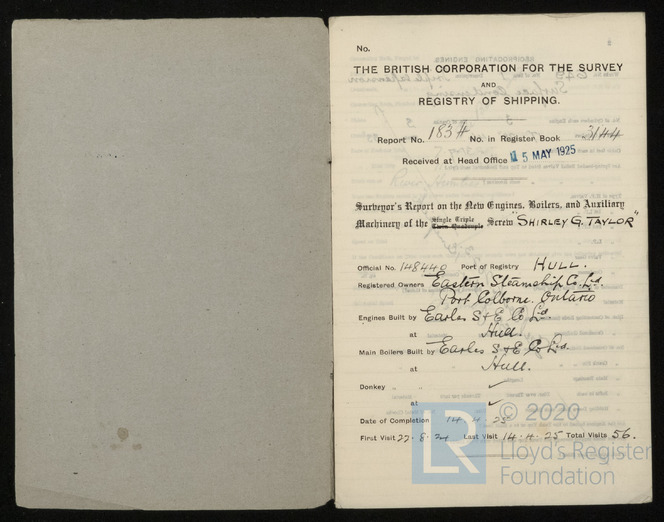 No.
THE BRITISH CORPORATION FOR THE SURVEY
AND
REGISTRY OF SHIPPING.
Report No. 1834 No. in Register Book 3144
Received at Head Office 15 MAY 1925
Surveyor's Report on the New Engines, Boilers, and Auxiliary
Machinery of the Single Triple Twin Quadruple Screw "SHIRLEY G. TAYLOR"
Official No. 148440 Port of Registry HULL.
Registered Owners Eastern Steamship Co. Ltd.
Port Colborne, Ontario
Engines Built by Earles S & E Co Ld.
at Hull.
Main Boilers Built by Earles S & E Co Ld.
at Hull.
Donkey " ✓
at ✓
Date of Completion 14.4.25
First Visit 27.8.24 Last Visit 14.4.25 Total Visits 56.
LR © 2020
Lloyd's Register
Foundation